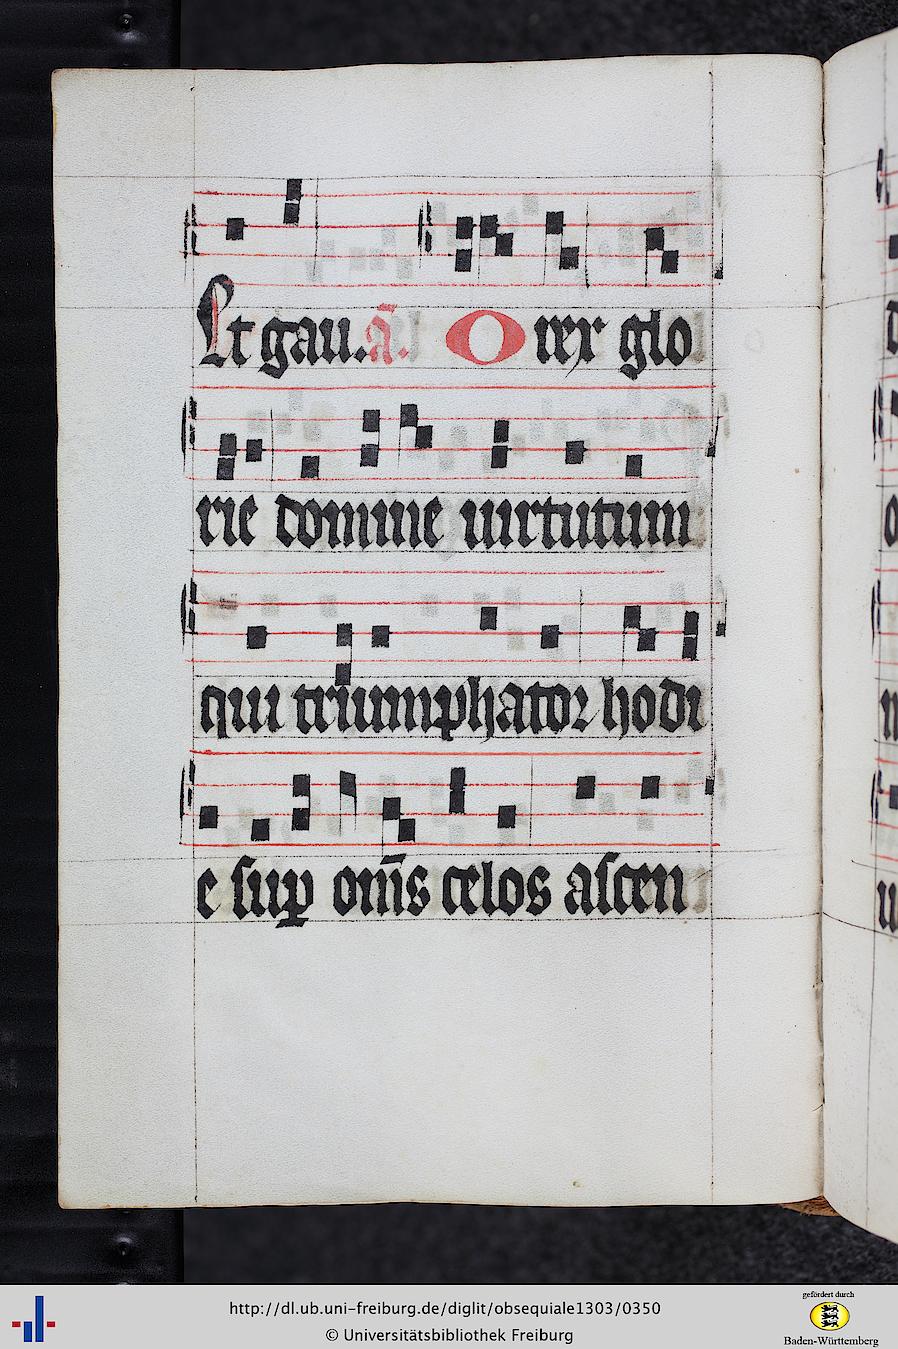 Et gau. a. O rex glo
rie domine uirtutum
qui triumphator hodi
e sup om̅s celos ascen
http://dl.ub.uni-freiburg.de/diglit/obsequiale1303/0350
© Universitätsbibliothek Freiburg
gefördert durch
Baden-Württemberg